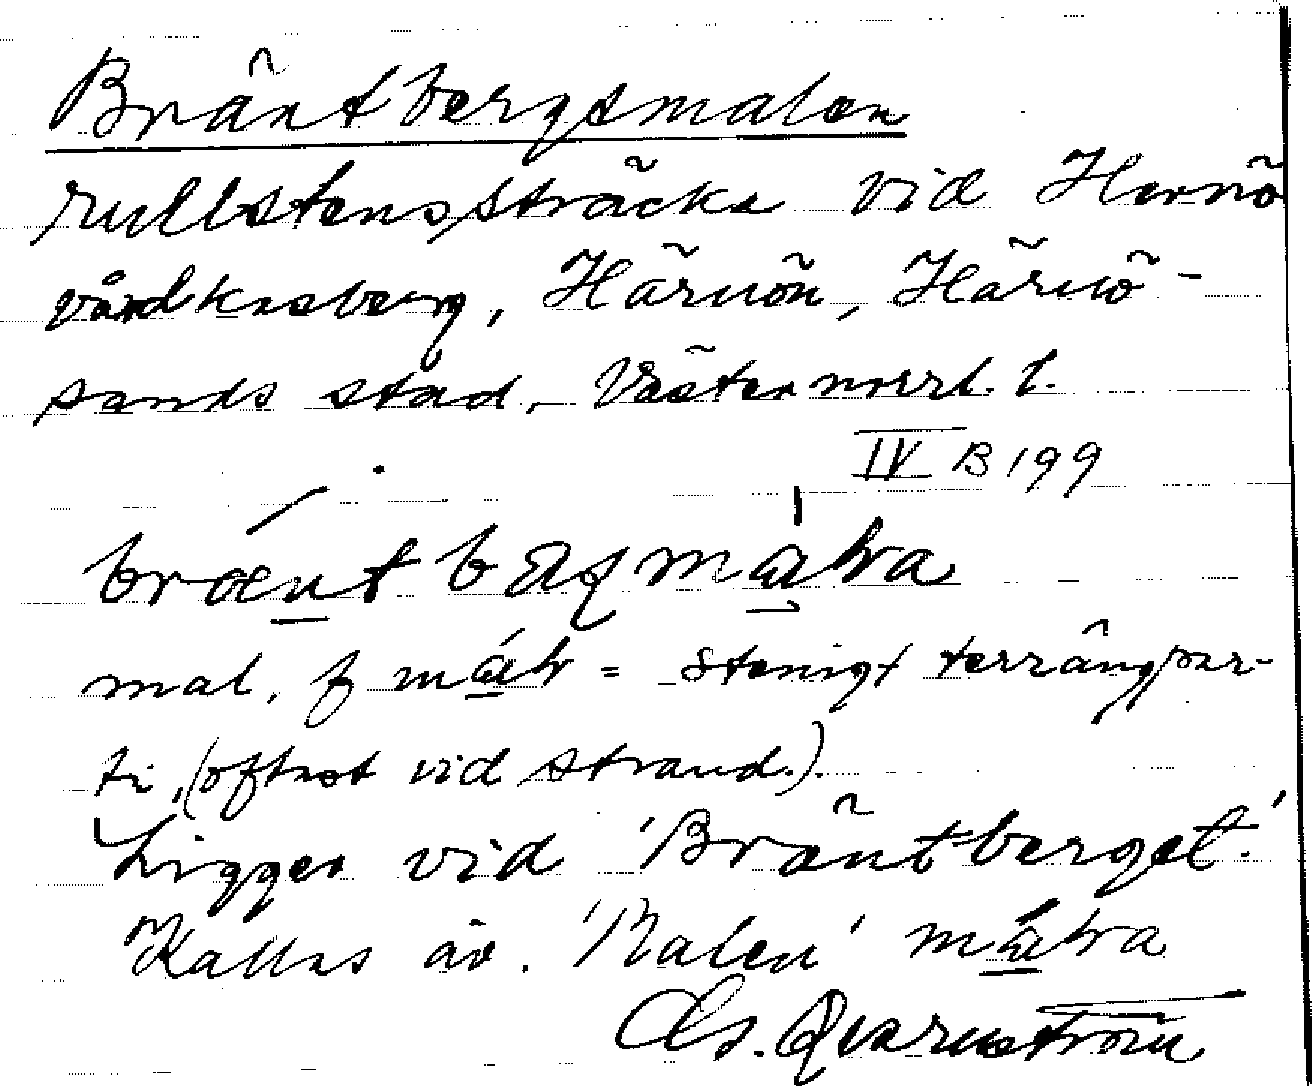 Bräntbergsmalen
rullstenssträcka vid Hernö
vårdkasberg, Härnön, Härnö-
sands stad, Västernorrl. l.
IV B 199
mal, f = stenigt terrängpar-
ti, (oftast vid strand.).
Ligger vid 'Bräntberget.'
Kallas äv. 'Malen'
Qvarnström